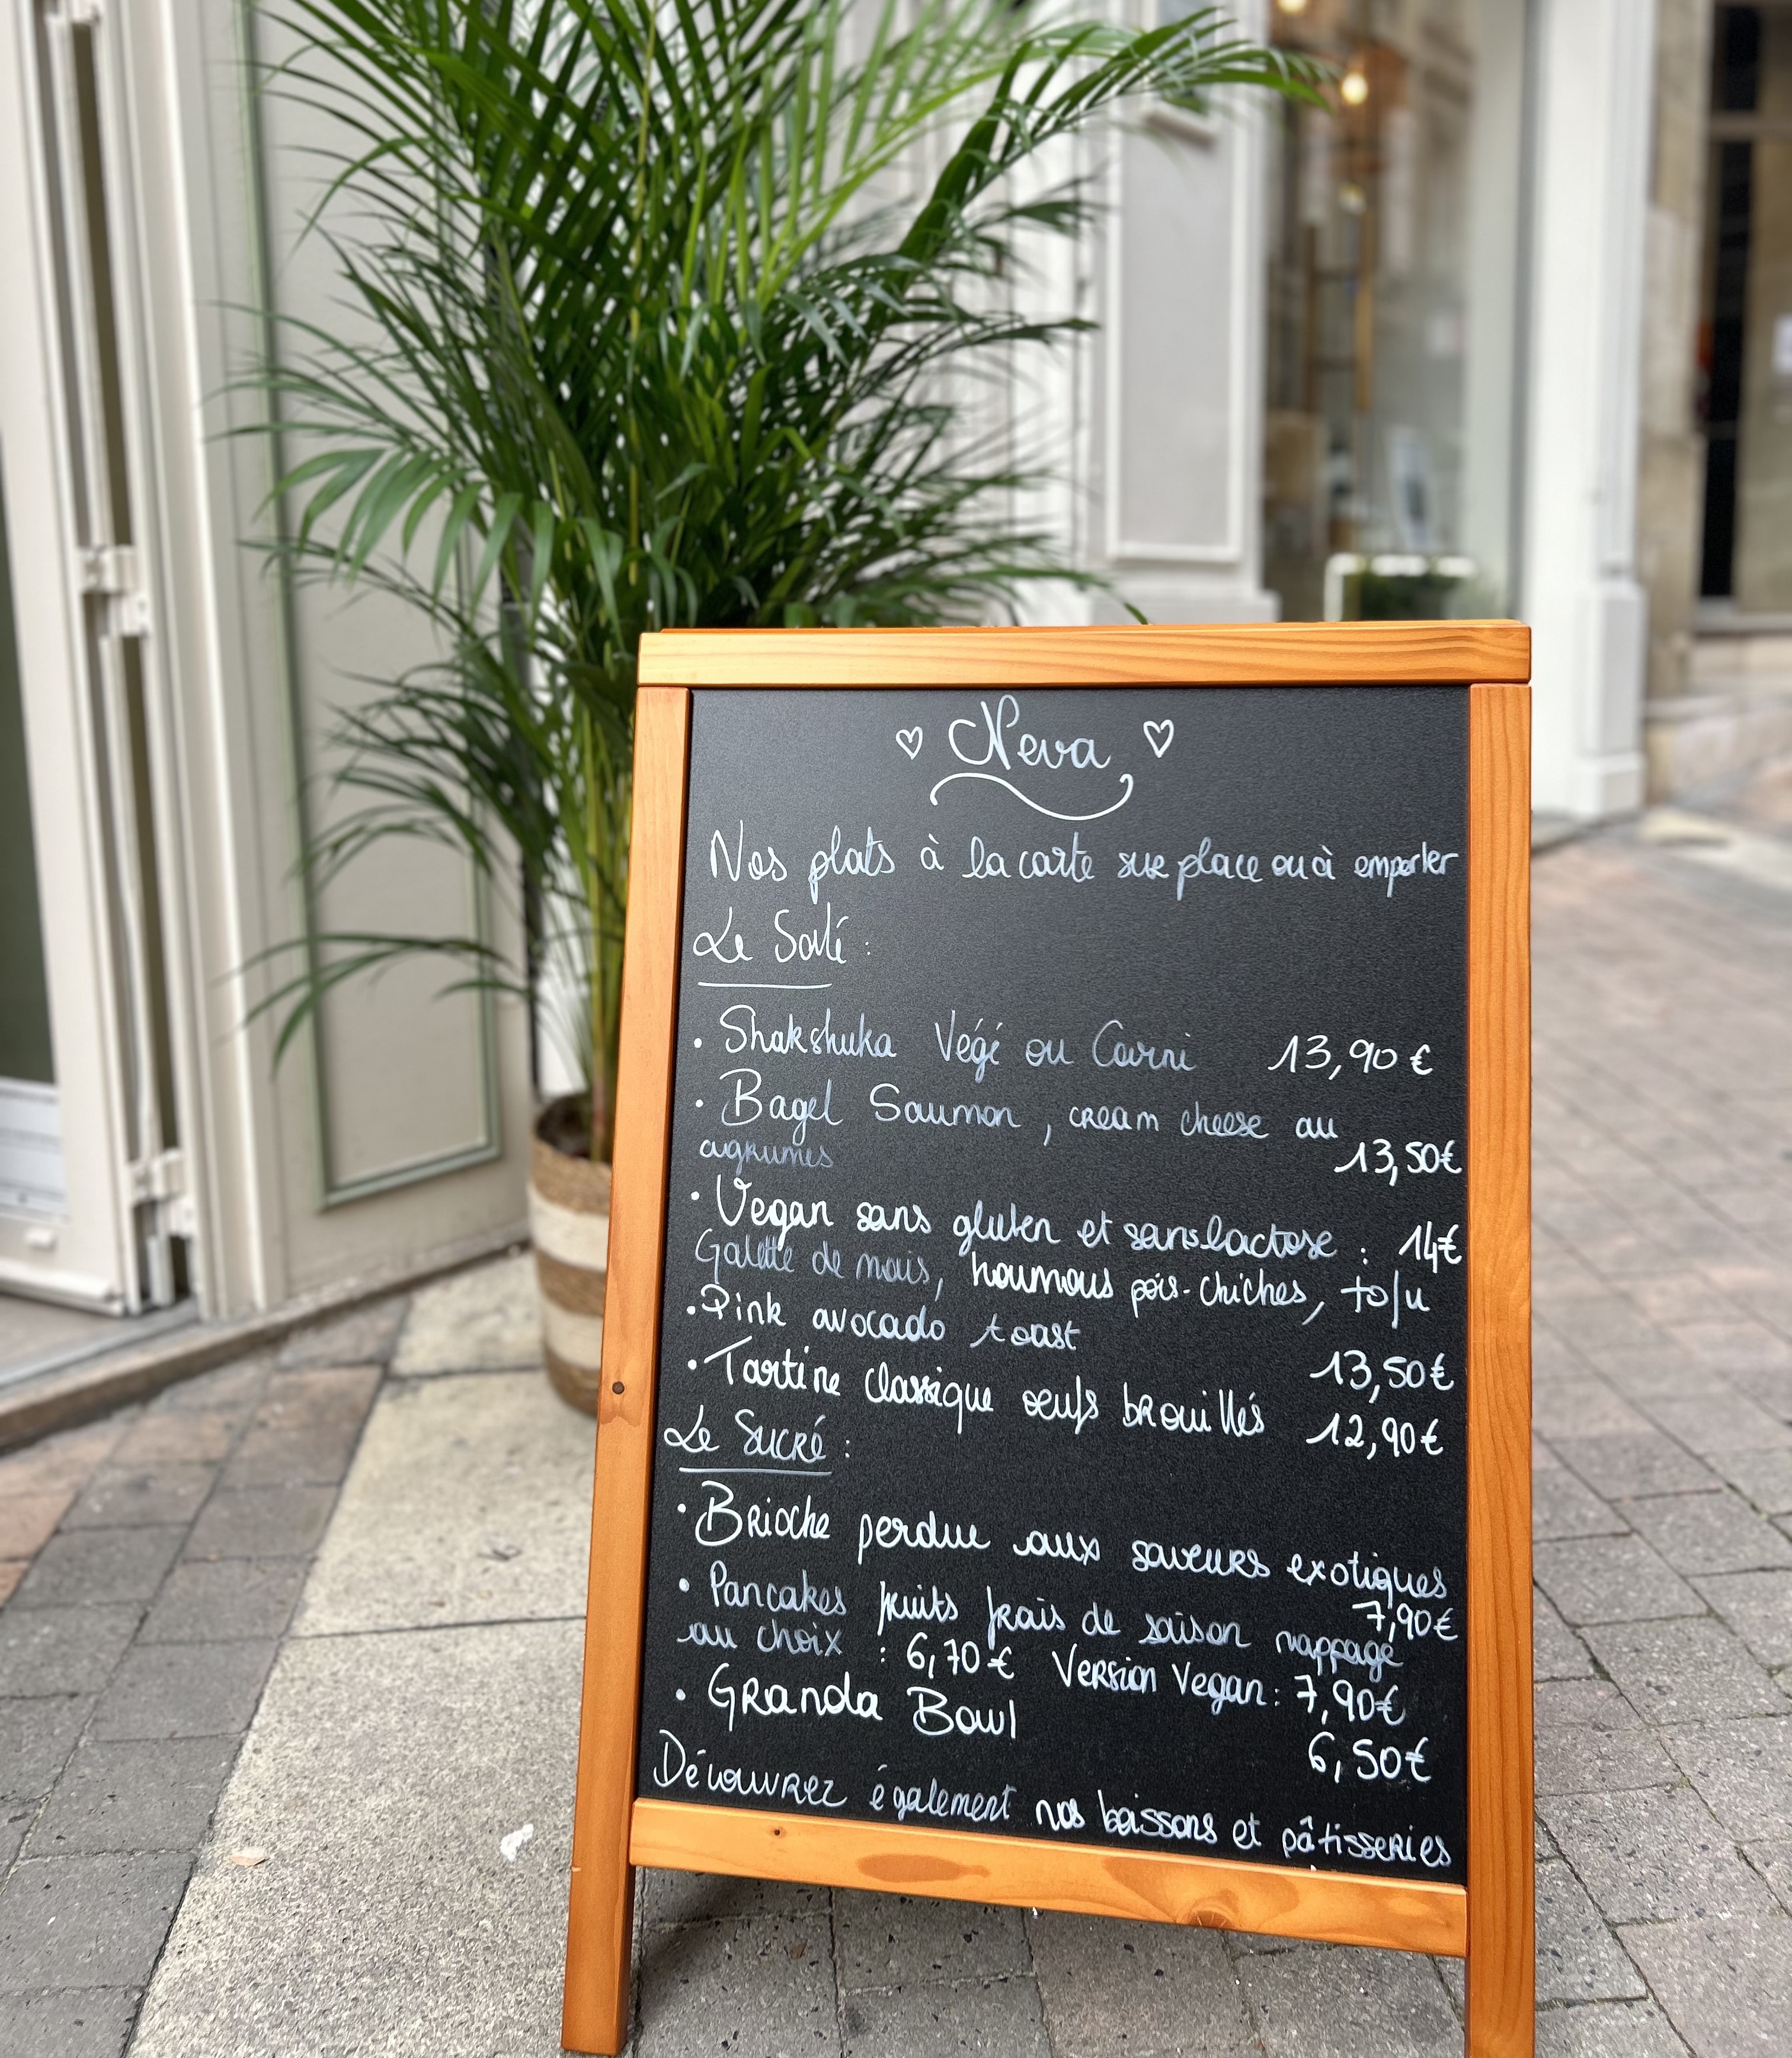 Neva
Nos plats à la carte sur place ou à emporter
Le Salé :
• Shakshuka Végé ou Carni 13,90 €
• Bagel Saumon, cream cheese au
agrumes 13,50€
• Vegan sans gluten et sans lactose : 14€
Galette de maïs, houmous pois-chiches, tofu
• Pink avocado toast
13,50€
• Tartine classique oeufs brouillés 12,90€
Le Sucré :
• Brioche perdue aux saveurs exotiques
7,90€
• Pancakes fruits frais de saison nappage
au choix : 6,70€ Version Vegan : 7,90€
• Granola Bowl
6,50€
Découvrez également nos boissons et pâtisseries